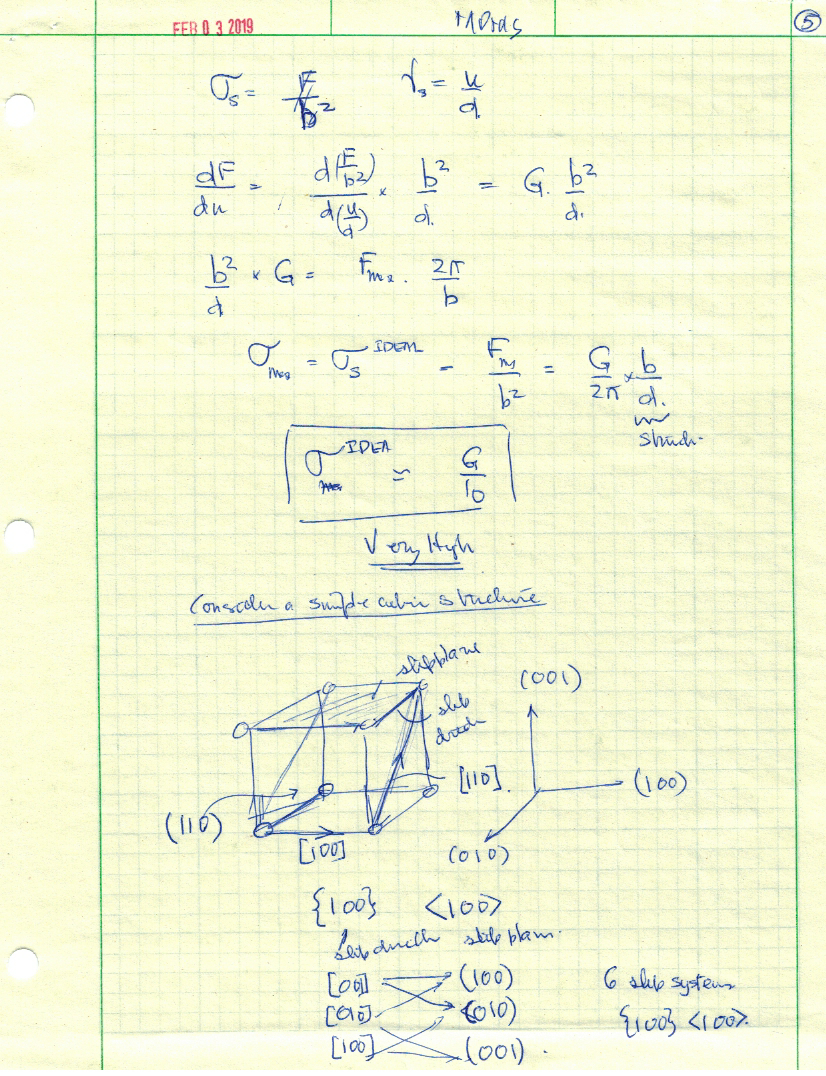 FEB 03 2019
5
σ_s = F/b² γ_s = u/d
dF/du = d(F/b²)/d(u/d) × b²/d. = G. b²/d.
b²/d × G = F_max . 2π/b
σ_max = σ_s^IDEAL = F_m/b² = G/2π × b/d.
σ^IDEA ≃ G/10
Very High
Consider a simple cubic structure
slip plane
(001)
slip
[110].
(100)
(110)
[100]
(010)
{100} <100>
slip plane
[001] (100)
[010] (010)
[100] (001) .
6 slip systems
{100} <100>.